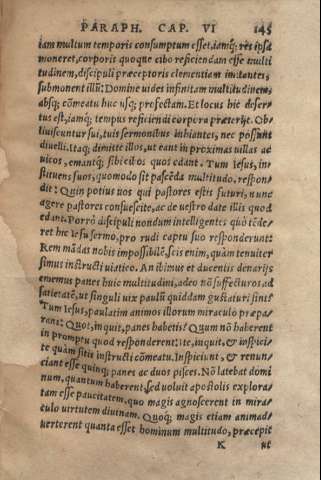 PARAPH. CAP. VI 145
iam multum temporis consumptum esset, iamq́; res ipsa
moneret, corporis quoque cibo reficiendam esse multi
tudinem, discipuli præceptoris clementiam imitantes,
submonent illū: Domine uides infinitam multitudinem,
absq; cōmeatu huc usq; profectam. Et locus hic deser-
tus est, iamq́; tempus reficiendi corpora præterijt. Ob
liuiscuntur sui, tuis sermonibus inhiantes, nec possunt
diuelli. Itaq; dimitte illos, ut eant in proximas uillas ac
uicos, emantq́; sibi cibos quos edant. Tum Iesus, in-
stituens suos, quomodo sit pascēda multitudo, respon-
dit: Quin potius uos qui pastores estis futuri, nunc
agere pastores consuescite, ac de uestro date illis quod
edant. Porrò discipuli nondum intelligentes quò tēde-
ret hic Iesu sermo, pro rudi captu suo responderunt:
Rem mādas nobis impoßibilē. scis enim, quàm tenuiter
simus instructi uiatico. An ibimus et ducentis denarijs
ememus panes huic multitudini, adeo nō suffecturos ad
satietatē, ut singuli uix paulū quiddam gustaturi sint?
Tum Iesus, paulatim animos illorum miraculo præpa-
rans: Quot, inquit, panes habetis? Quum nō haberent
in promptu quod responderent: Ite, inquit, & inspici-
te quàm sitis instructi cōmeatu. Inspiciunt, & renun-
ciant esse quinq; panes ac duos pisces. Nō latebat domi
num, quantum haberent sed uoluit apostolis explora-
tam esse paucitatem, quo magis agnoscerent in mira-
culo uirtutem diuinam. Quoq́; magis etiam animad-
uerterent quanta esset hominum multitudo, præcepit
K ut